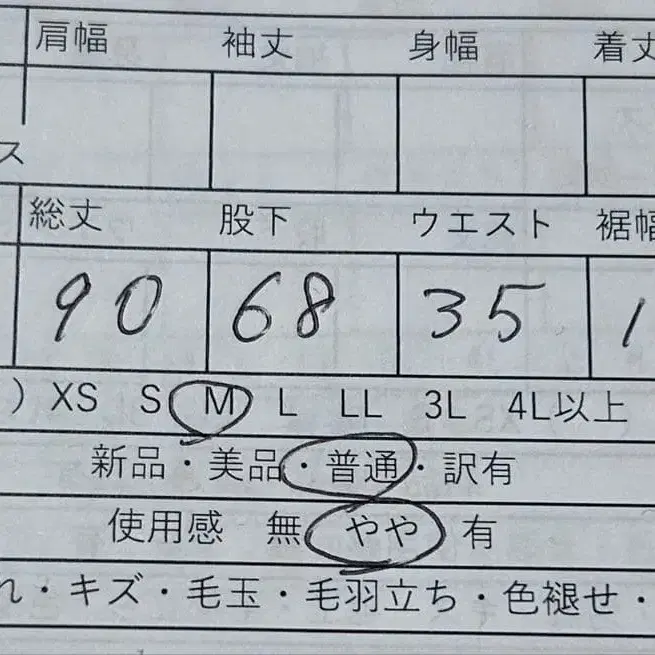 肩幅 袖丈 身幅 着丈
ス
総丈 股下 ウエスト 裾幅
90 68 35 1
) XS S M L LL 3L 4L以上
新品・美品・普通・訳有
使用感 無 やや 有
れ・キズ・毛玉・毛羽立ち・色褪せ・